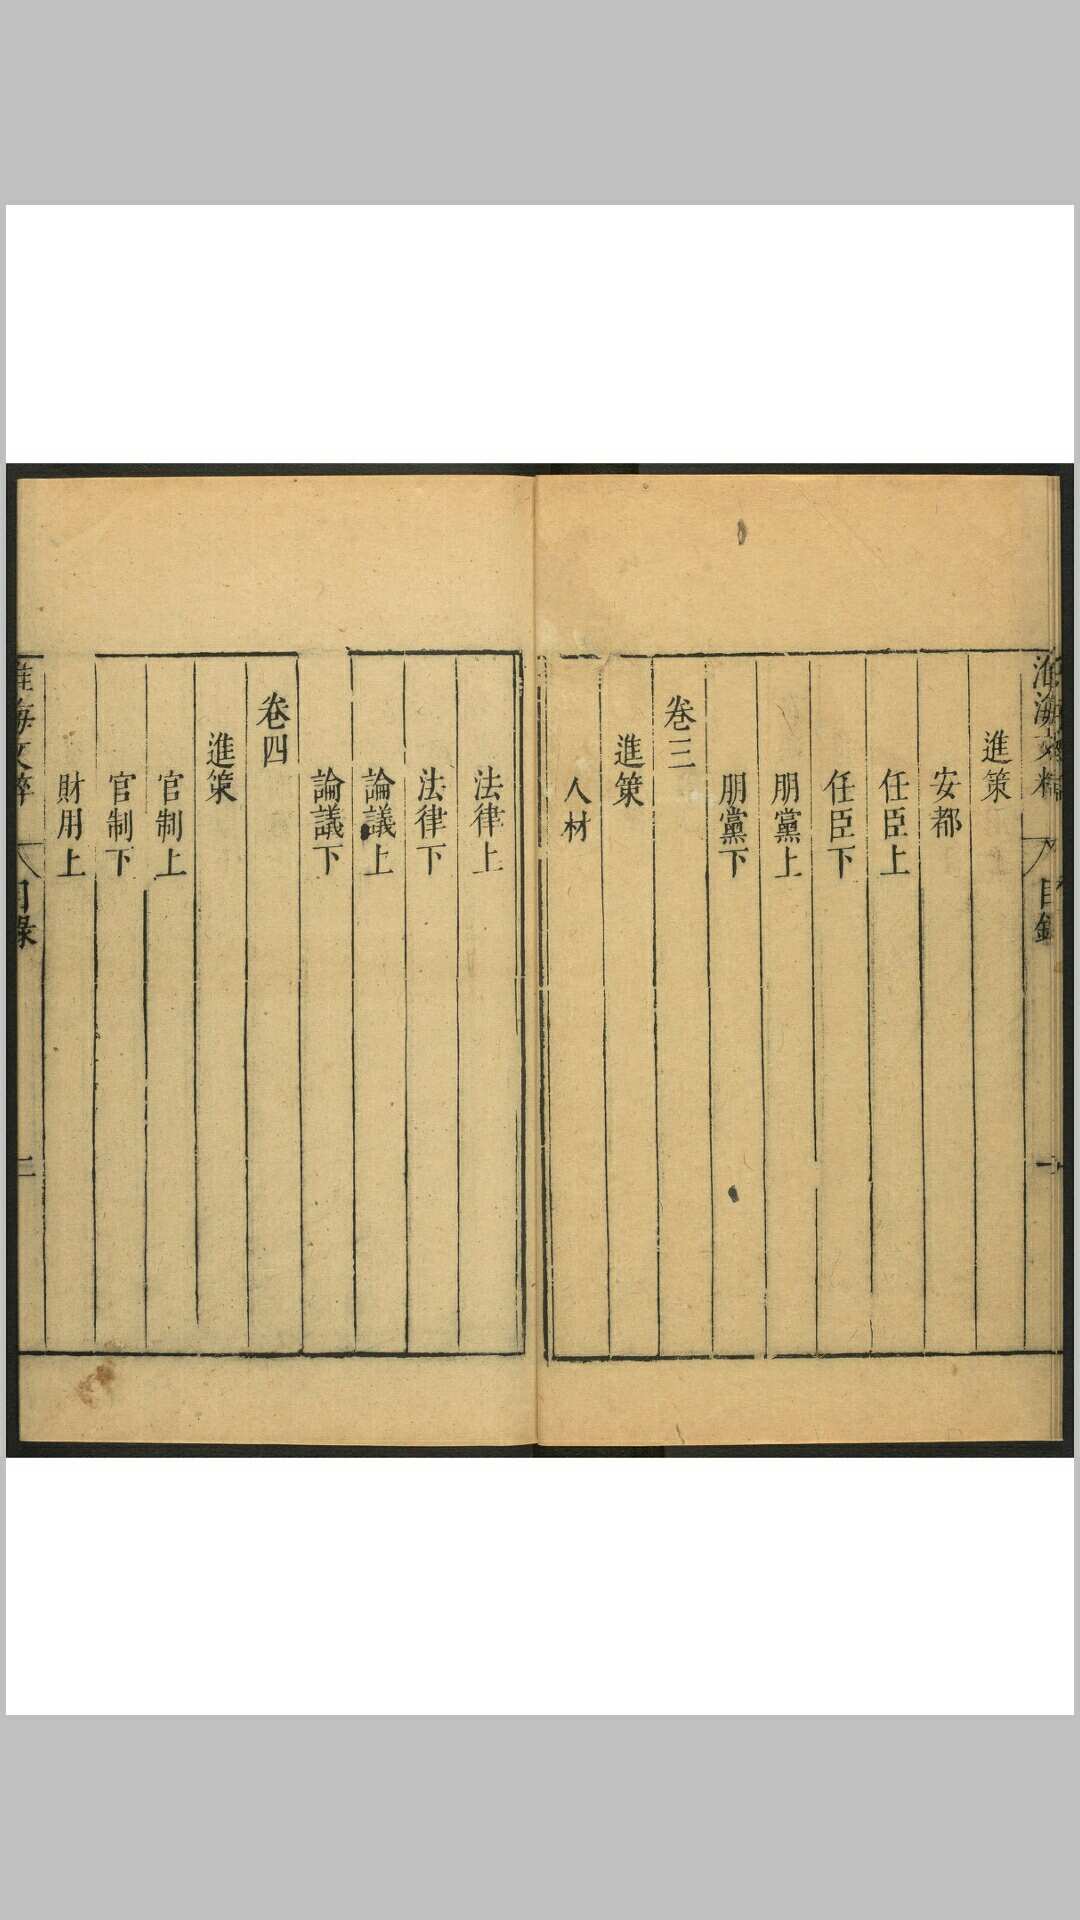 進策
安都
任臣上
任臣下
朋黨上
朋黨下
卷三
進策
人材
法律上
法律下
論議上
論議下
卷四
進策
官制上
官制下
財用上
淮海文粹
目錄
二